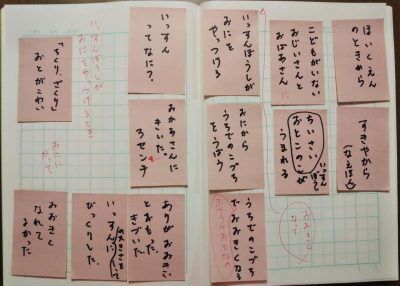 ほいくえん
のときから
すきやから
(なまえ
こどもがいない
おじいさんと
おばあさんに
ちいさい
おとこのこが
うまれる
いっすんぼうしが
おにを
やっつける
おにから
うちでのこづち
をうばう
うちでのこづち
でおおきくなる
いっすん
ってなに?
おかあさんに
きいた。
3センチ
ありがおおきい
とおもった
きづいた。
いっすんに
びっくりした。
いっすんぼうしが
おにをやっつけるとき
「ちくり、ざくり」
おとがこわい
おおきく
なれて
よかった